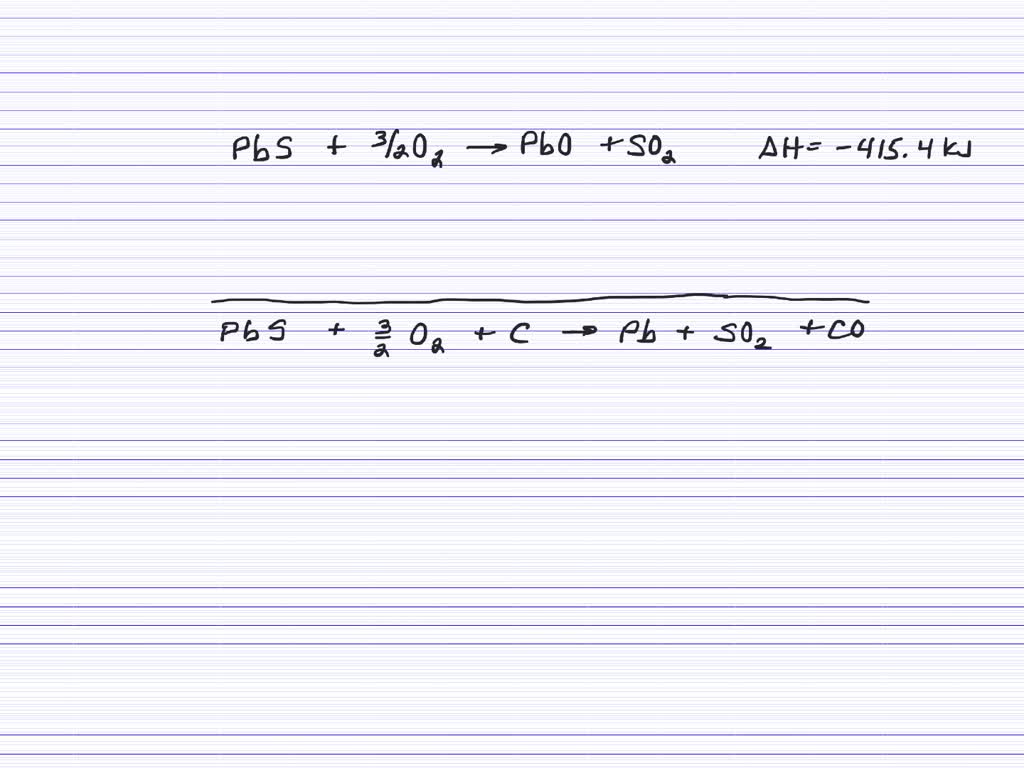 PbS + 3/2O₂ → PbO + SO₂ ΔH = -415.4 kJ
PbS + 3/2 O₂ + C → Pb + SO₂ + CO